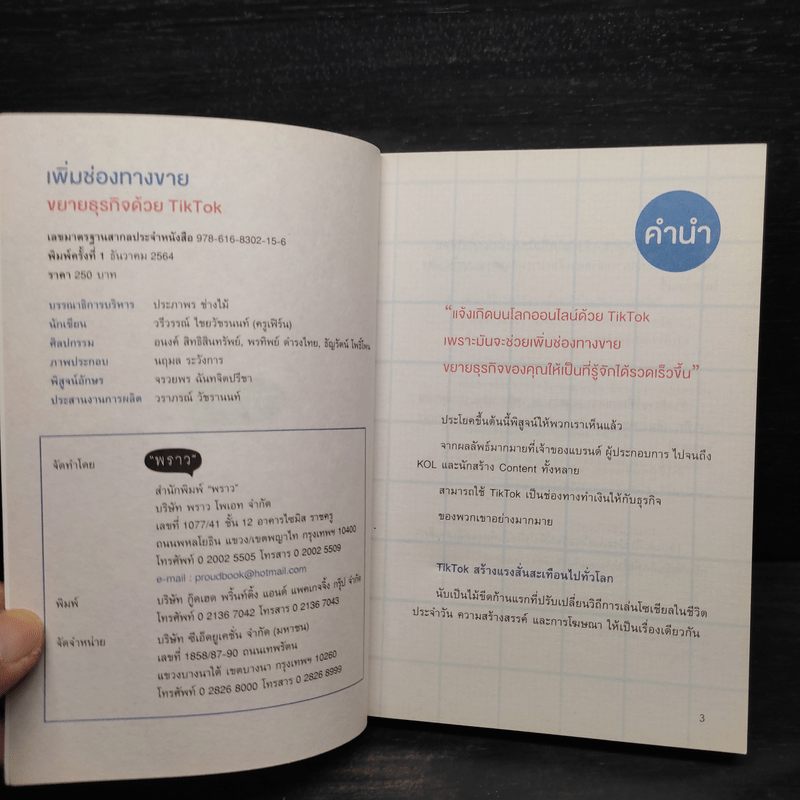 เพิ่มช่องทางขาย
ขยายธุรกิจด้วย TikTok
เลขมาตรฐานสากลประจำหนังสือ 978-616-8302-15-6
พิมพ์ครั้งที่ 1 ธันวาคม 2564
ราคา 250 บาท
บรรณาธิการบริหาร ประภาพร ช่างไม้
นักเขียน วรีวรรณ์ ไชยวัชรนนท์ (ครูเฟิร์น)
ศิลปกรรม อนงค์ สิทธิสินทรัพย์, พรทิพย์ ดำรงไทย, ธัญรัตน์
ภาพประกอบ นฤมล ระวังการ
พิสูจน์อักษร จรวยพร ฉันทจิตปรีชา
ประสานงานการผลิต วราภรณ์ วัชรานนท์
จัดทำโดย "พราว"
สำนักพิมพ์ "พราว"
บริษัท พราว โพเอท จำกัด
เลขที่ 1077/41 ชั้น 12 อาคารไซมิส ราชครู
ถนนพหลโยธิน แขวง/เขตพญาไท กรุงเทพฯ 10400
โทรศัพท์ 0 2002 5505 โทรสาร 0 2002 5509
e-mail : proudbook@hotmail.com
พิมพ์ บริษัท กู๊ดเฮด พริ้นท์ติ้ง แอนด์ แพคเกจจิ้ง กรุ๊ป จำกัด
โทรศัพท์ 0 2136 7042 โทรสาร 0 2136 7043
จัดจำหน่าย บริษัท ซีเอ็ดยูเคชั่น จำกัด (มหาชน)
เลขที่ 1858/87-90 ถนนเทพรัตน
แขวงบางนาใต้ เขตบางนา กรุงเทพฯ 10260
โทรศัพท์ 0 2826 8000 โทรสาร 0 2826 8999
คำนำ
"แจ้งเกิดบนโลกออนไลน์ด้วย TikTok
เพราะมันจะช่วยเพิ่มช่องทางขาย
ขยายธุรกิจของคุณให้เป็นที่รู้จักได้รวดเร็วขึ้น"
ประโยคขึ้นต้นนี้พิสูจน์ให้พวกเราเห็นแล้ว
จากผลลัพธ์มากมายที่เจ้าของแบรนด์ ผู้ประกอบการ ไปจนถึง
KOL และนักสร้าง Content ทั้งหลาย
สามารถใช้ TikTok เป็นช่องทางทำเงินให้กับธุรกิจ
ของพวกเขาอย่างมากมาย
TikTok สร้างแรงสั่นสะเทือนไปทั่วโลก
นับเป็นไม้ขีดก้านแรกที่ปรับเปลี่ยนวิถีการเล่นโซเชียลในชีวิต
ประจำวัน ความสร้างสรรค์ และการโฆษณา ให้เป็นเรื่องเดียวกัน
3